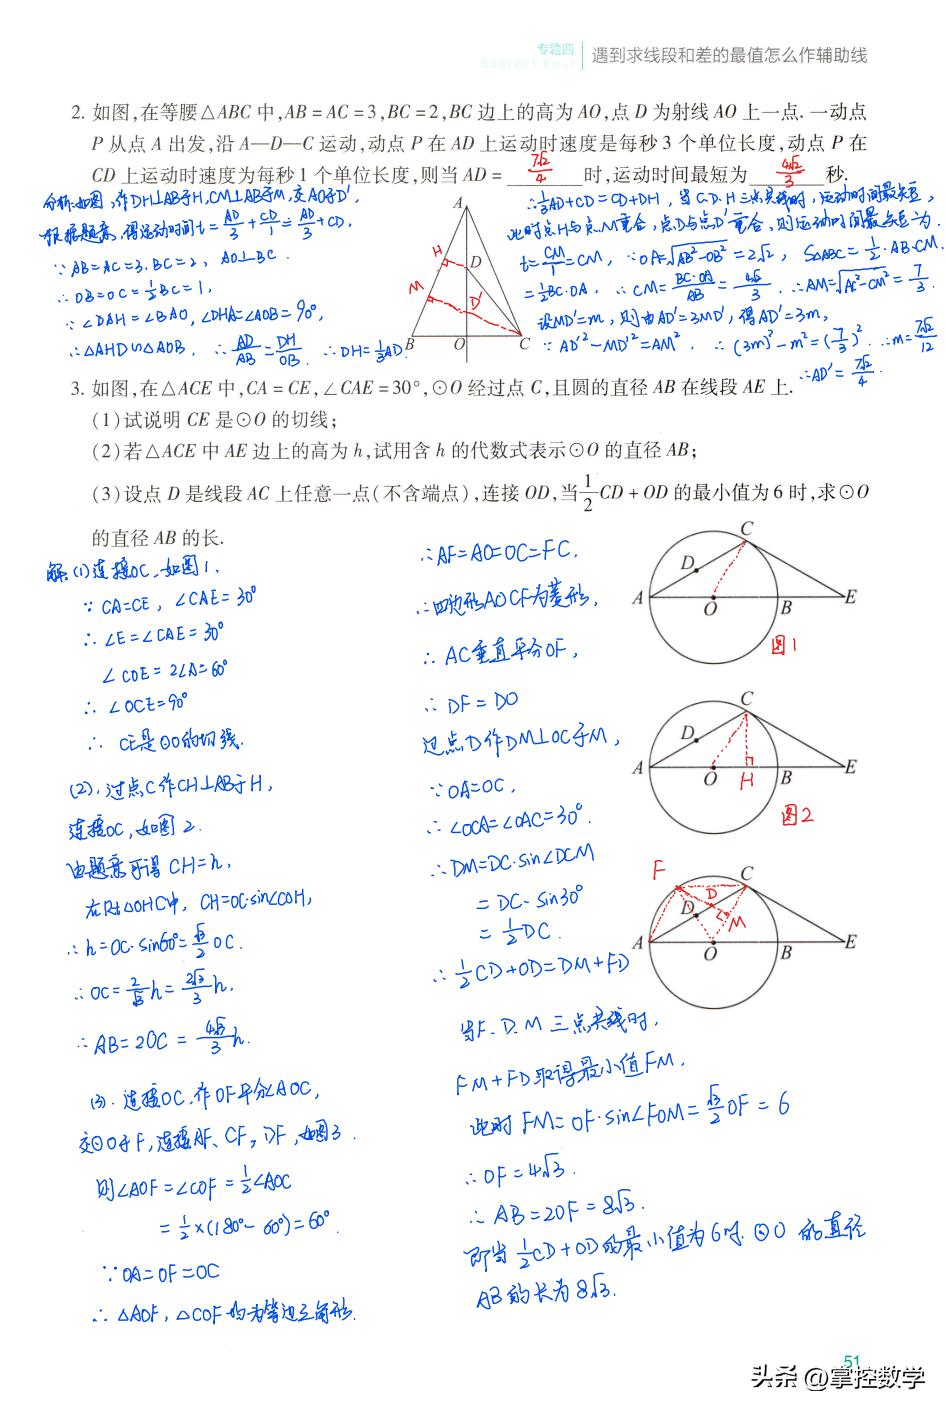 专题四
Subject Four
遇到求线段和差的最值怎么作辅助线
2. 如图,在等腰△ABC 中,AB = AC = 3,BC = 2,BC 边上的高为 AO,点 D 为射线 AO 上一点. 一动点
P 从点 A 出发,沿 A—D—C 运动,动点 P 在 AD 上运动时速度是每秒 3 个单位长度,动点 P 在
CD 上运动时速度为每秒 1 个单位长度,则当 AD = 7√2/4 时,运动时间最短为 4√2/3 秒.
分析:如图,作DH⊥AB于H,CM⊥AB于M,交AO于D′,
根据题意,得运动时间t=AD/3+CD/1=AD/3+CD.
∵AB=AC=3.BC=2, AO⊥BC.
∴OB=OC=½BC=1,
∵∠DAH=∠BAO,∠DHA=∠AOB=90°,
∴△AHD∽△AOB. ∴AD/AB=DH/OB. ∴DH=⅓AD.
∴⅓AD+CD=CD+DH, 当C.D.H三点共线时,运动时间最短,
此时点H与点M重合,点D与点D′重合,则运动时间最短为.
t=CM/1=CM, ∵OA=√(AB²-OB²)=2√2, S△ABC=½·AB·CM.
=½BC·OA, ∴CM=BC·OA/AB=4√2/3. ∴AM=√(AC²-CM²)=7/3.
设MD′=m,则由AD′=3MD′,得AD′=3m,
∵AD′²-MD′²=AM². ∴(3m)²-m²=(7/3)². ∴m=7√2/12
∴AD′=7√2/4.
A
H
D
M
D′
B
O
C
3. 如图,在△ACE 中,CA = CE,∠CAE = 30°,⊙O 经过点 C,且圆的直径 AB 在线段 AE 上.
(1)试说明 CE 是⊙O 的切线;
(2)若△ACE 中 AE 边上的高为 h,试用含 h 的代数式表示⊙O 的直径 AB;
(3)设点 D 是线段 AC 上任意一点(不含端点),连接 OD,当½CD + OD 的最小值为 6 时,求⊙O
的直径 AB 的长.
解:(1)连接OC,如图1.
∵CA=CE,∠CAE=30°
∴∠E=∠CAE=30°
∠COE=2∠A=60°
∴∠OCE=90°
∴CE是⊙O的切线.
(2).过点C作CH⊥AB于H,
连接OC,如图2.
由题意可得 CH=h.
在Rt△OHC中, CH=OC·sin∠COH,
∴h=OC·sin60°=√3/2 OC.
∴OC=2/√3 h=2√3/3 h.
∴AB=2OC=4√3/3 h.
(3).连接OC.作OF平分∠AOC,
交⊙O于F,连接AF、CF,DF,如图3.
则∠AOF=∠COF=½∠AOC
=½×(180°-60°)=60°.
∵OA=OF=OC
∴△AOF,△COF均为等边三角形.
∴AF=AO=OC=FC.
∴四边形AOCF为菱形,
∴AC垂直平分OF,
∴DF=DO
过点D作DM⊥OC于M,
∵OA=OC,
∴∠OCA=∠OAC=30°.
∴DM=DC·sin∠DCM
=DC·sin30°
=½DC.
∴½CD+OD=DM+FD
当F.D.M三点共线时,
FM+FD取得最小值FM.
此时FM=OF·sin∠FOM=√3/2 OF=6
∴OF=4√3.
∴AB=2OF=8√3.
即当½CD+OD的最小值为6时.⊙O的直径
AB的长为8√3.
C
D
A
O
B
E
图1
C
D
A
O
H
B
E
图2
F
C
D
D
M
A
O
B
E
51
头条 @掌控数学